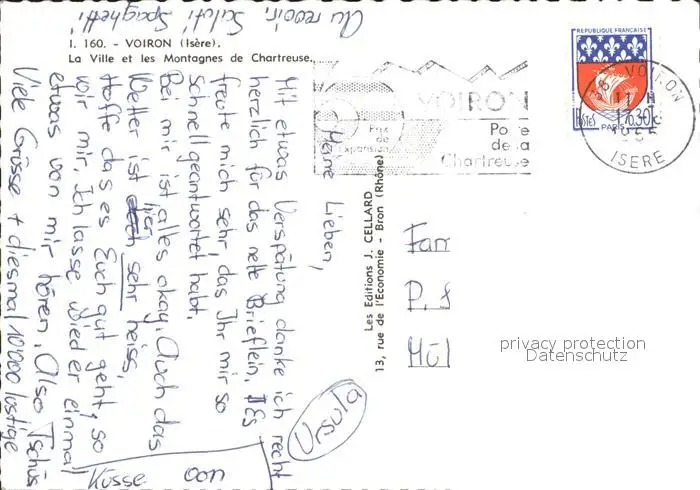 I. 160. - VOIRON (Isère).
La Ville et les Montagnes de Chartreuse.
Meine Lieben,
Mit etwas Verspätung danke ich recht
herzlich für das nette Brieflein. Es
freute mich sehr, das Ihr mir so
schnell geantwortet habt.
Bei mir ist alles okay. Auch das
Wetter ist hier sehr heiss.
Hoffe das es Euch gut geht, so
wir mir. Ich lasse wieder einmal
etwas von mir hören. Also Tschüs
Viele Grüsse + diesmal 10'000 lustige
Küsse von
Ursula
Au revoir, Saluti, Spaghetti
Les Editions J. CELLARD
13, rue de l'Economie - Bron (Rhône)
VOIRON
Porte
de la
Chartreuse
Pax
de
Expansion
REPUBLIQUE FRANÇAISE
POSTES
0,30
PARIS
38 VOIRON
17 H
ISERE
Fam
P. S
Mül
privacy protection
Datenschutz